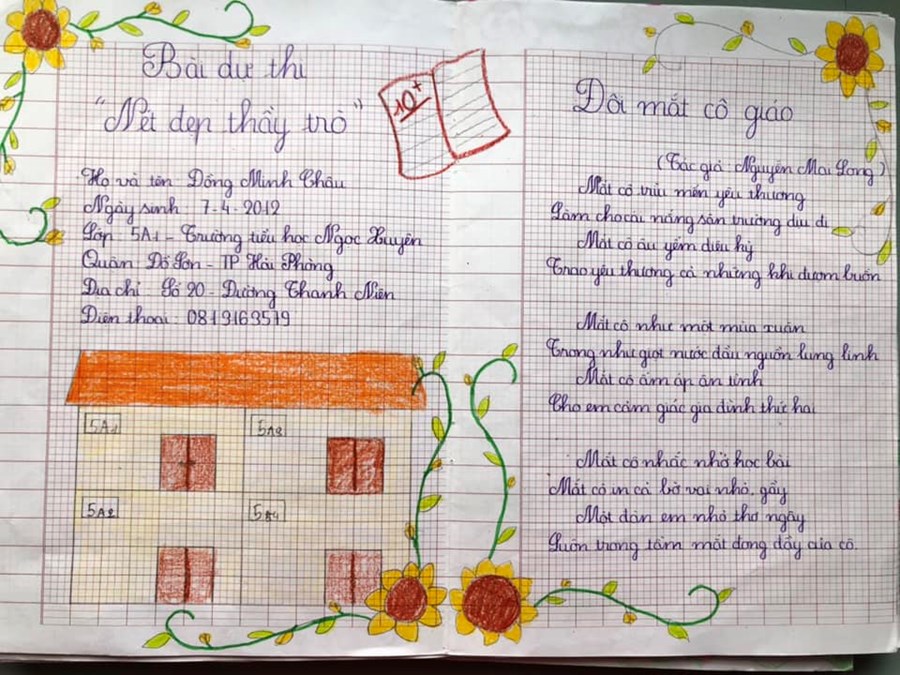 Bài dự thi
"Nét đẹp thầy trò"
Họ và tên: Đồng Minh Châu
Ngày sinh: 7-4-2012
Lớp: 5A1 - Trường tiểu học Ngọc Xuyên
Quận: Đồ Sơn - TP Hải Phòng
Địa chỉ: Số 20 - Đường Thanh Niên
Điện thoại: 0819163519
5A1
5A2
5A2
5A4
10+
Đôi mắt cô giáo
(Tác giả Nguyễn Mai Long)
Mắt cô trìu mến yêu thương
Làm cho cái nắng sân trường dịu đi
Mắt cô âu yếm diệu kỳ
Trao yêu thương cả những khi đượm buồn
Mắt cô như một mùa xuân
Trong như giọt nước đầu nguồn lung linh
Mắt cô ấm áp ân tình
Cho em cảm giác gia đình thứ hai
Mắt cô nhắc nhở học bài
Mắt cô in cả bờ vai nhỏ, gầy
Một đàn em nhỏ thơ ngây
Luôn trong tầm mắt đong đầy của cô